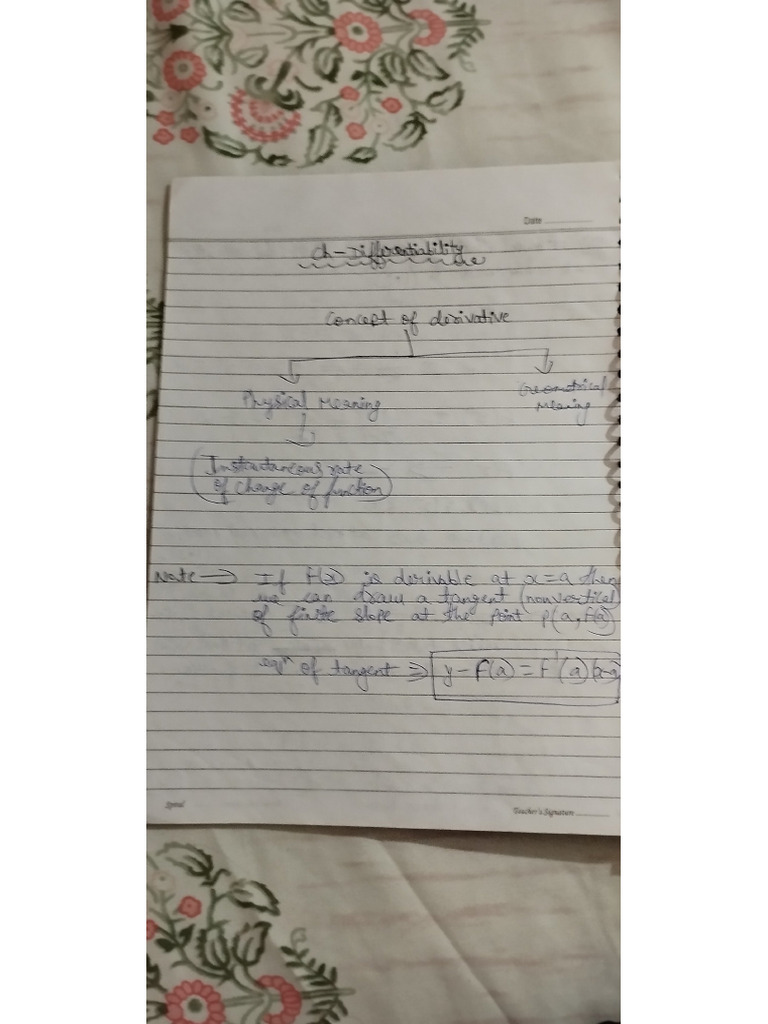 Date
Ch-Differentiability
Concept of derivative
Physical Meaning
Geometrical
Meaning
Instantaneous rate
of change of function
Note → If f(x) is derivable at x=a then
we can draw a tangent (nonvertical)
of finite slope at the point P(a, f(a))
eqn of tangent ⇒ y-f(a)=f'(a)(x-a)
Spiral
Teacher's Signature